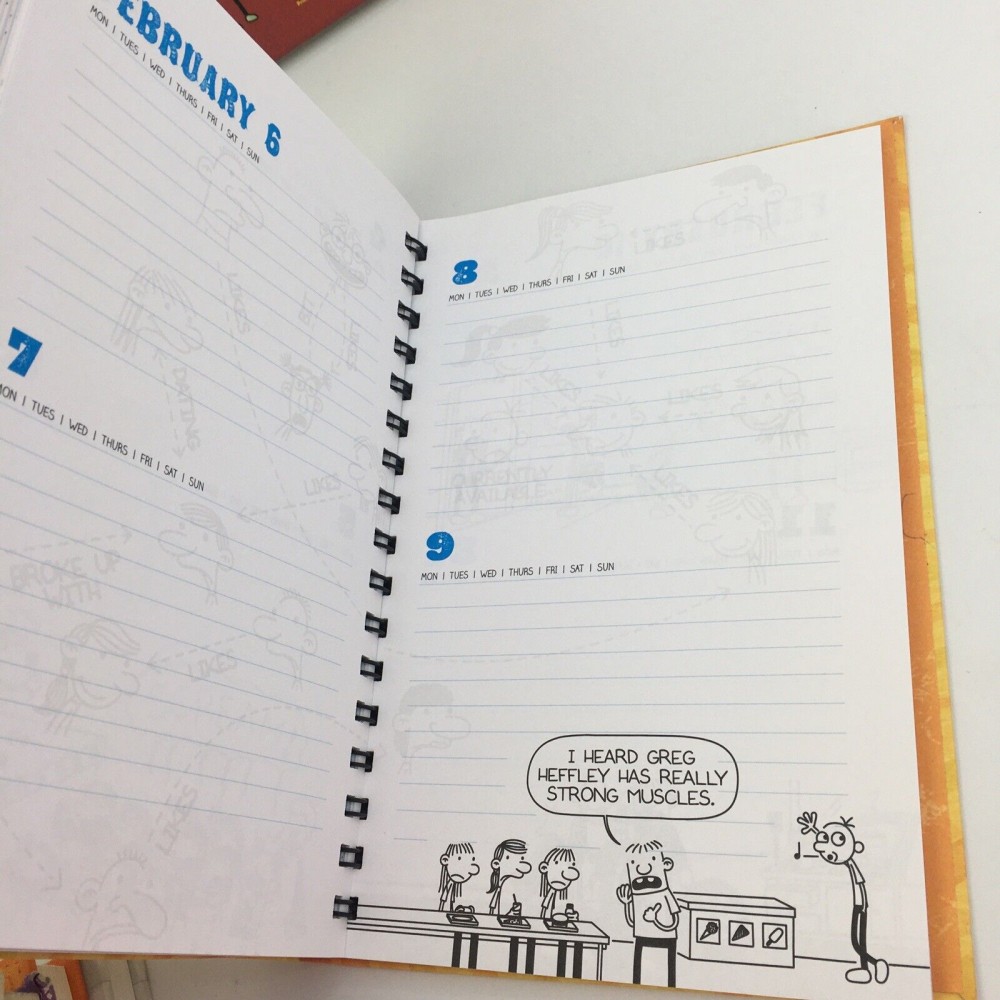 EBRUARY 6
MON | TUES | WED | THURS | FRI | SAT | SUN
LIKES
LIKES
DATING
7
MON | TUES | WED | THURS | FRI | SAT | SUN
LIKES
BROKE UP
WITH
LIKES
LIKES
8
MON | TUES | WED | THURS | FRI | SAT | SUN
LIKES
LIKES
LIKES
LIKES
CURRENTLY
AVAILABLE
LIKES
9
MON | TUES | WED | THURS | FRI | SAT | SUN
I HEARD GREG
HEFFLEY HAS REALLY
STRONG MUSCLES.